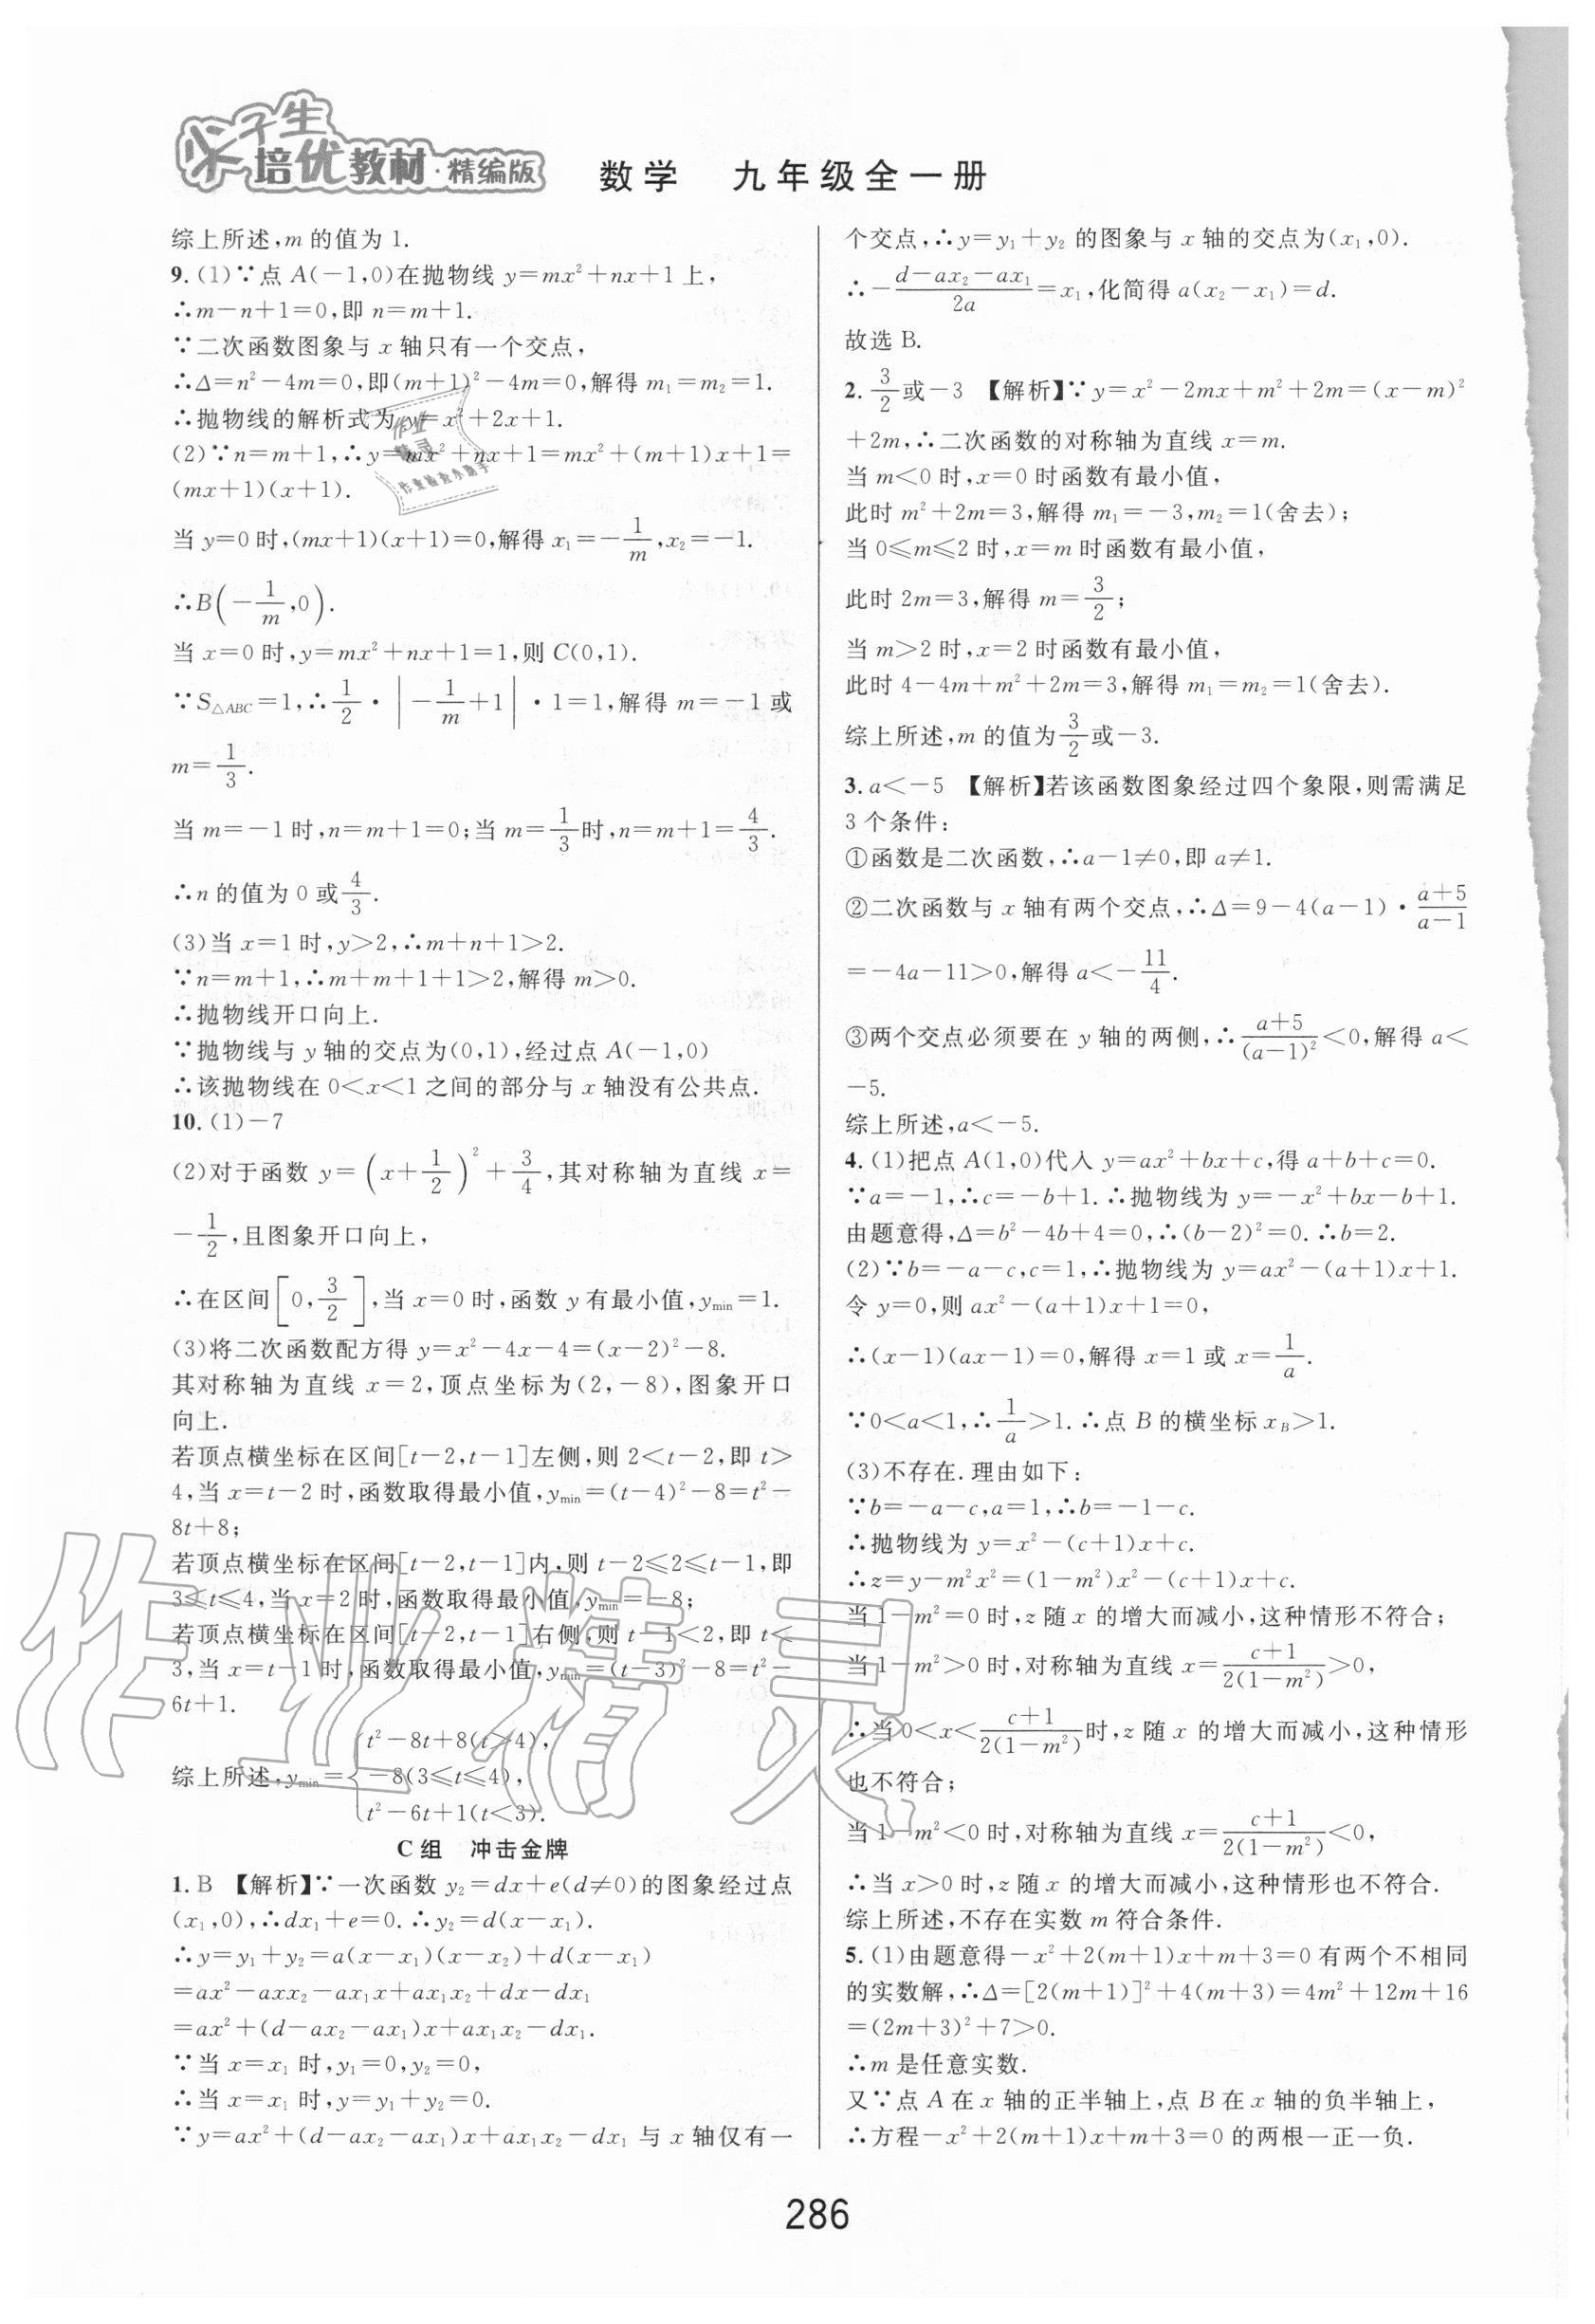 尖子生
培优教材·精编版 数学 九年级全一册
综上所述,m 的值为 1.
9. (1)∵点 A(−1,0)在抛物线 y=mx²+nx+1 上,
∴m−n+1=0,即 n=m+1.
∵二次函数图象与 x 轴只有一个交点,
∴Δ=n²−4m=0,即(m+1)²−4m=0,解得 m₁=m₂=1.
∴抛物线的解析式为 y=x²+2x+1.
(2)∵n=m+1,∴y=mx²+nx+1=mx²+(m+1)x+1=
(mx+1)(x+1).
当 y=0 时,(mx+1)(x+1)=0,解得 x₁=−1/m,x₂=−1.
∴B(−1/m,0).
当 x=0 时,y=mx²+nx+1=1,则 C(0,1).
∵S△ABC=1,∴1/2·|−1/m+1|·1=1,解得 m=−1 或
m=1/3.
当 m=−1 时,n=m+1=0;当 m=1/3时,n=m+1=4/3.
∴n 的值为 0 或4/3.
(3)当 x=1 时,y>2,∴m+n+1>2.
∵n=m+1,∴m+m+1+1>2,解得 m>0.
∴抛物线开口向上.
∵抛物线与 y 轴的交点为(0,1),经过点 A(−1,0)
∴该抛物线在 0<x<1 之间的部分与 x 轴没有公共点.
10. (1)−7
(2)对于函数 y=(x+1/2)²+3/4,其对称轴为直线 x=
−1/2,且图象开口向上,
∴在区间[0,3/2],当 x=0 时,函数 y 有最小值,ymin=1.
(3)将二次函数配方得 y=x²−4x−4=(x−2)²−8.
其对称轴为直线 x=2,顶点坐标为(2,−8),图象开口
向上.
若顶点横坐标在区间[t−2,t−1]左侧,则 2<t−2,即 t>
4,当 x=t−2 时,函数取得最小值,ymin=(t−4)²−8=t²−
8t+8;
若顶点横坐标在区间[t−2,t−1]内,则 t−2≤2≤t−1,即
3≤t≤4,当 x=2 时,函数取得最小值,ymin=−8;
若顶点横坐标在区间[t−2,t−1]右侧,则 t−1<2,即 t<
3,当 x=t−1 时,函数取得最小值,ymin=(t−3)²−8=t²−
6t+1.
t²−8t+8(t>4),
综上所述,ymin={−8(3≤t≤4),
t²−6t+1(t<3).
C 组 冲击金牌
1. B 【解析】∵一次函数 y₂=dx+e(d≠0)的图象经过点
(x₁,0),∴dx₁+e=0. ∴y₂=d(x−x₁).
∴y=y₁+y₂=a(x−x₁)(x−x₂)+d(x−x₁)
=ax²−axx₂−ax₁x+ax₁x₂+dx−dx₁
=ax²+(d−ax₂−ax₁)x+ax₁x₂−dx₁.
∵当 x=x₁ 时,y₁=0,y₂=0,
∴当 x=x₁ 时,y=y₁+y₂=0.
∵y=ax²+(d−ax₂−ax₁)x+ax₁x₂−dx₁ 与 x 轴仅有一
个交点,∴y=y₁+y₂ 的图象与 x 轴的交点为(x₁,0).
∴−(d−ax₂−ax₁)/2a=x₁,化简得 a(x₂−x₁)=d.
故选 B.
2. 3/2或−3 【解析】∵y=x²−2mx+m²+2m=(x−m)²
+2m,∴二次函数的对称轴为直线 x=m.
当 m<0 时,x=0 时函数有最小值,
此时 m²+2m=3,解得 m₁=−3,m₂=1(舍去);
当 0≤m≤2 时,x=m 时函数有最小值,
此时 2m=3,解得 m=3/2;
当 m>2 时,x=2 时函数有最小值,
此时 4−4m+m²+2m=3,解得 m₁=m₂=1(舍去).
综上所述,m 的值为3/2或−3.
3. a<−5 【解析】若该函数图象经过四个象限,则需满足
3 个条件:
①函数是二次函数,∴a−1≠0,即 a≠1.
②二次函数与 x 轴有两个交点,∴Δ=9−4(a−1)·(a+5)/(a−1)
=−4a−11>0,解得 a<−11/4.
③两个交点必须要在 y 轴的两侧,∴(a+5)/(a−1)²<0,解得 a<
−5.
综上所述,a<−5.
4. (1)把点 A(1,0)代入 y=ax²+bx+c,得 a+b+c=0.
∵a=−1,∴c=−b+1. ∴抛物线为 y=−x²+bx−b+1.
由题意得,Δ=b²−4b+4=0,∴(b−2)²=0. ∴b=2.
(2)∵b=−a−c,c=1,∴抛物线为 y=ax²−(a+1)x+1.
令 y=0,则 ax²−(a+1)x+1=0,
∴(x−1)(ax−1)=0,解得 x=1 或 x=1/a.
∵0<a<1,∴1/a>1. ∴点 B 的横坐标 xB>1.
(3)不存在.理由如下:
∵b=−a−c,a=1,∴b=−1−c.
∴抛物线为 y=x²−(c+1)x+c.
∴z=y−m²x²=(1−m²)x²−(c+1)x+c.
当 1−m²=0 时,z 随 x 的增大而减小,这种情形不符合;
当 1−m²>0 时,对称轴为直线 x=(c+1)/2(1−m²)>0,
∴当 0<x<(c+1)/2(1−m²)时,z 随 x 的增大而减小,这种情形
也不符合;
当 1−m²<0 时,对称轴为直线 x=(c+1)/2(1−m²)<0,
∴当 x>0 时,z 随 x 的增大而减小,这种情形也不符合.
综上所述,不存在实数 m 符合条件.
5. (1)由题意得−x²+2(m+1)x+m+3=0 有两个不相同
的实数解,∴Δ=[2(m+1)]²+4(m+3)=4m²+12m+16
=(2m+3)²+7>0.
∴m 是任意实数.
又∵点 A 在 x 轴的正半轴上,点 B 在 x 轴的负半轴上,
∴方程−x²+2(m+1)x+m+3=0 的两根一正一负.
286
作业精灵